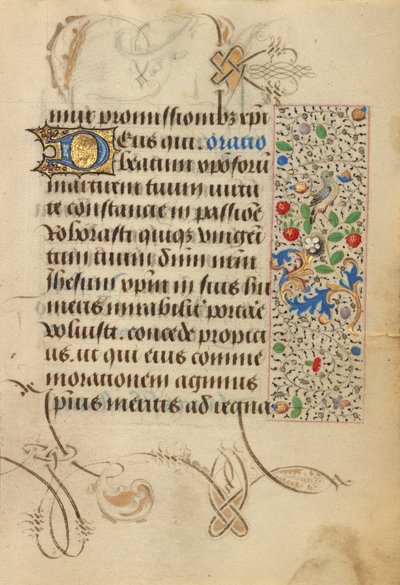 mur promissionibꝫ xp̄i
Deus qui. oratio
beatum xpoforū
martirem tuum uirtu
te constancie in passiōe
roborasti quiqꝫ unigeni
tum tuum dn̄m nr̄m
Jhesum xp̄m in suis hu
meris mirabilit̄ portare
voluisti. concede propici
us. ut qui eius comme
morationem agimus
ip̄ius meritis ad regna